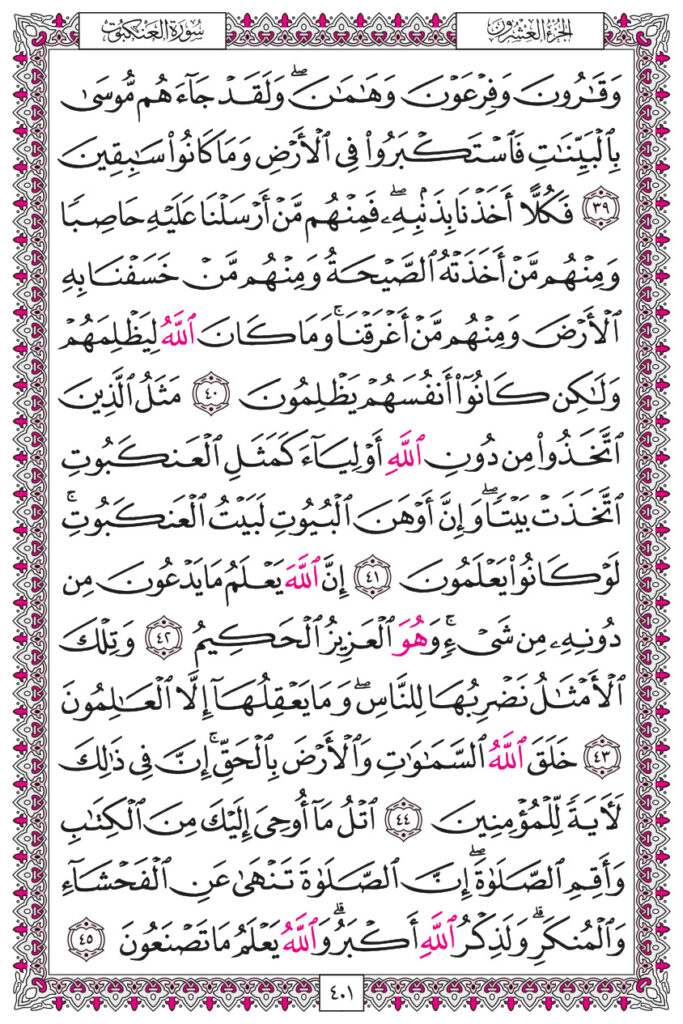 الجُزْءُ العِشْرُونَ
سُورَةُ العَنكَبُوتِ
وَقَٰرُونَ وَفِرْعَوْنَ وَهَٰمَٰنَۖ وَلَقَدْ جَآءَهُم مُّوسَىٰ
بِٱلْبَيِّنَٰتِ فَٱسْتَكْبَرُوا۟ فِى ٱلْأَرْضِ وَمَا كَانُوا۟ سَٰبِقِينَ
٣٩ فَكُلًّا أَخَذْنَا بِذَنۢبِهِۦۖ فَمِنْهُم مَّنْ أَرْسَلْنَا عَلَيْهِ حَاصِبًا
وَمِنْهُم مَّنْ أَخَذَتْهُ ٱلصَّيْحَةُ وَمِنْهُم مَّنْ خَسَفْنَا بِهِ
ٱلْأَرْضَ وَمِنْهُم مَّنْ أَغْرَقْنَاۚ وَمَا كَانَ ٱللَّهُ لِيَظْلِمَهُمْ
وَلَٰكِن كَانُوٓا۟ أَنفُسَهُمْ يَظْلِمُونَ ٤٠ مَثَلُ ٱلَّذِينَ
ٱتَّخَذُوا۟ مِن دُونِ ٱللَّهِ أَوْلِيَآءَ كَمَثَلِ ٱلْعَنكَبُوتِ
ٱتَّخَذَتْ بَيْتًاۖ وَإِنَّ أَوْهَنَ ٱلْبُيُوتِ لَبَيْتُ ٱلْعَنكَبُوتِۚ
لَوْ كَانُوا۟ يَعْلَمُونَ ٤١ إِنَّ ٱللَّهَ يَعْلَمُ مَا يَدْعُونَ مِن
دُونِهِۦ مِن شَىْءٍۚ وَهُوَ ٱلْعَزِيزُ ٱلْحَكِيمُ ٤٢ وَتِلْكَ
ٱلْأَمْثَٰلُ نَضْرِبُهَا لِلنَّاسِۖ وَمَا يَعْقِلُهَآ إِلَّا ٱلْعَٰلِمُونَ
٤٣ خَلَقَ ٱللَّهُ ٱلسَّمَٰوَٰتِ وَٱلْأَرْضَ بِٱلْحَقِّۚ إِنَّ فِى ذَٰلِكَ
لَءَايَةً لِّلْمُؤْمِنِينَ ٤٤ ٱتْلُ مَآ أُوحِىَ إِلَيْكَ مِنَ ٱلْكِتَٰبِ
وَأَقِمِ ٱلصَّلَوٰةَۖ إِنَّ ٱلصَّلَوٰةَ تَنْهَىٰ عَنِ ٱلْفَحْشَآءِ
وَٱلْمُنكَرِۗ وَلَذِكْرُ ٱللَّهِ أَكْبَرُۗ وَٱللَّهُ يَعْلَمُ مَا تَصْنَعُونَ ٤٥
٤٠١